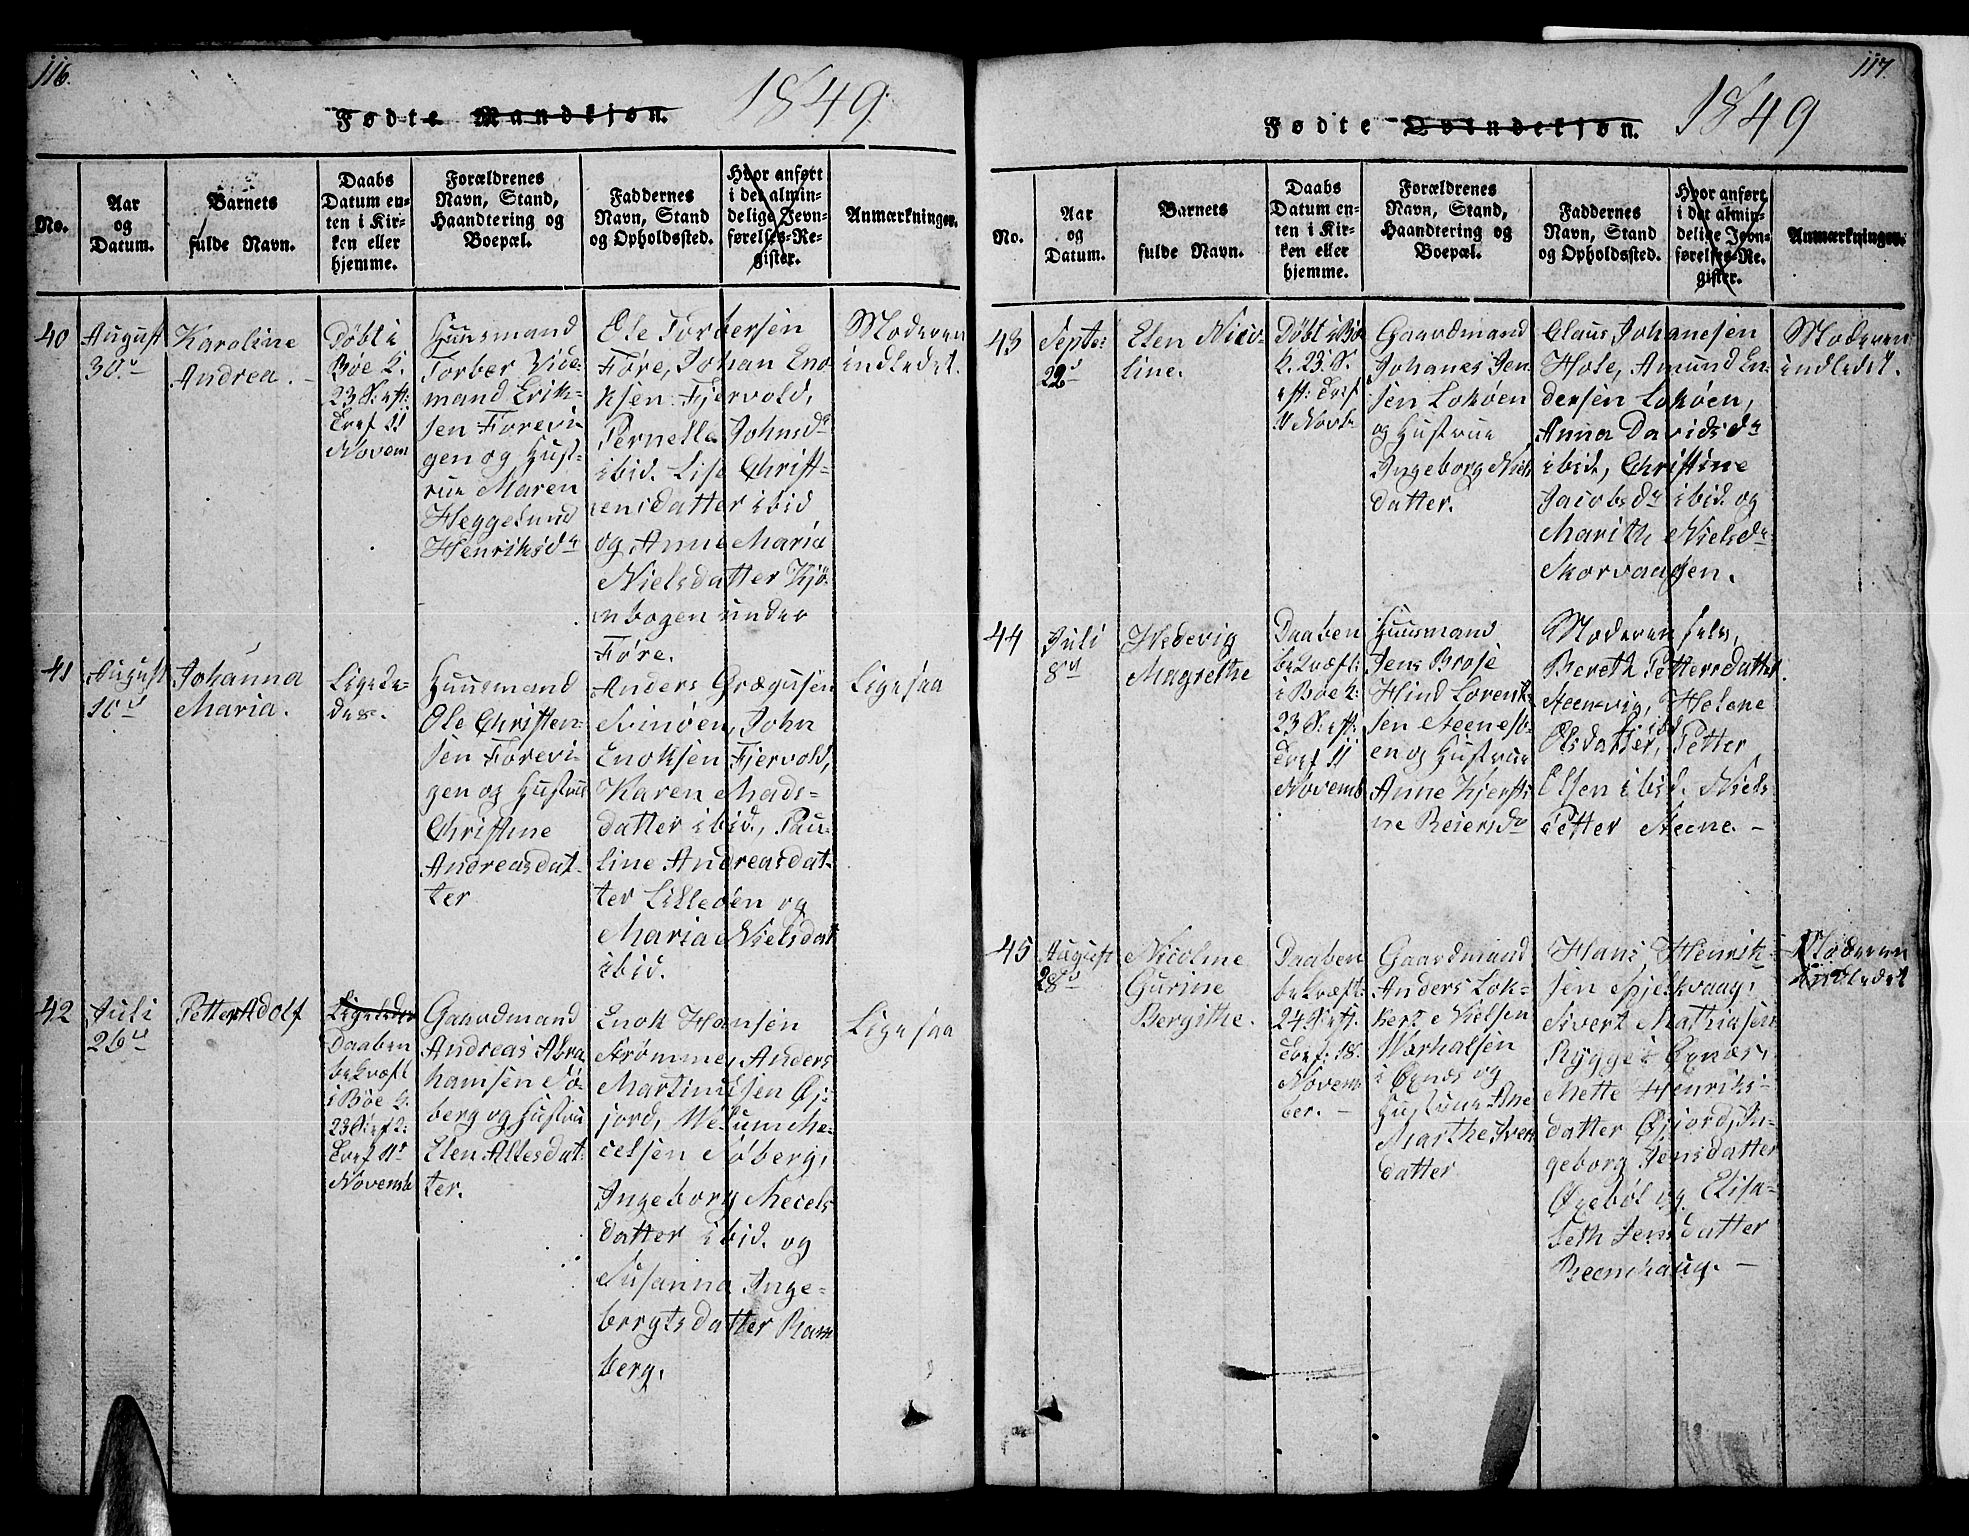 116.
Fødte Mandkjøn. 1849.
No.
Aar
og
Datum.
Barnets
fulde Navn.
Daabs
Datum en-
ten i Kir-
ken eller
hjemme.
Forældrenes
Navn, Stand,
Haandtering og
Boepæl.
Faddernes
Navn, Stand
og Opholdssted.
Hvor anført
i det almin-
delige Jevn-
førelses-Re-
gister.
Anmærkninger.
40
August
30.
Karoline
Andrea.
Døbt i
Bøe K.
23 S. eft:
Tref 11
Novem
Huusmand
Torber Vide-
mand Erik-
sen Førevi
gen og Hust-
rue Maren
Heggelund
Henriksd
Ole Torbersen
Føre, Johan Eno
ksen Fjervold,
Pernella Johnsd
ibid. Lise Christ-
ensdatter ibid
og Anne Maria
Nielsdatter Kjö-
nbogen under
Före.
Moderen
indledet.
41
August
10
Johanna
Maria.
Ligele-
des.
Huusmand
Ole Christen-
sen Førevi
gen og Hustrue
Christine
Andreasdat-
ter
Anders Grægusen
Svinøen, John
Enoksen Fjervold,
Karen Mads-
datter ibid, Pau-
line Andreasdat-
ter Lilleøen og
Maria Nielsdat
ibid.
Ligesaa
42
Juli
26
Petter Adolf
Ligeledes
Daaben
bekræft
i Bøe K.
23 S. ef 2:
Tref 11
Novemb
Gaardmand
Andreas Abra
hamsen Sø-
berg og Hustru
Elen Altesdat-
ter.
Enok Hansen
Strømme, Anders
Martinusen Øj-
jord, Melum Me-
celsen Søberg,
Ingeborg Mecels
datter ibid. og
Susanna Inge-
bergtsdatter Ram
berg.
Ligesaa
117
Fødte Qvindekjøn. 1849
No.
Aar
og
Datum.
Barnets
fulde Navn.
Daabs
Datum en-
ten i Kir-
ken eller
hjemme.
Forældrenes
Navn, Stand,
Haandtering og
Boepæl.
Faddernes
Navn, Stand
og Opholdssted.
Hvor anført
i det almin-
delige Jevn-
førelses-Re-
gister.
Anmærkninger.
43
Septe:
22
Elen Nico-
line.
Døbt i Bøe
K. 23. S.
eft: Tref
11 Novb
Gaardmand
Johanes Jen
sen Lokøen
og Hustrue
Ingeborg Niels
datter.
Claus Johanesen
Hole, Amund En-
dersen Lokøen,
Anna Davidsd
ibid, Christine
Jacobsd ibid og
Marith Nielsd
Skorvaagen.
Moderen
indledet.
44
Juli
8
Hedevig
Magrethe
Daaben
bekræft:
i Bøe K:
23 S. eft:
Tref 11
Novemb
Huusmand
Jens Brose
Hind Lorent-
sen Steenesø-
en og Hustrue
Anne Kjersti-
ne Reiersd
Moderen selv,
Bereth Pettersdatter
Steenvig, Helene
Olsdatter, ibid
Petter
Olsen ibid. Niels
Petter Steene. –
45
August
28
Nicoline
Gurine
Bergithe.
Daaben
bekræft:
24 S. eft.
Tref: 18.
Novem
ber. –
Gaardmand
Anders Lok-
kert Nielsen
Værhalsen
i Øxnes og
Hustrue Ane
Marthe Ivers
datter
Hans Henrik-
sen Spjelkvaag,
Sivert Mathiasen
Rygge i Øxnæs,
Mette Henriks-
datter Øjord, In-
geborg Jensdatter
Øxebøl og Elisa-
beth Jensdatter
Reenshaug. –
Moderen
indledet